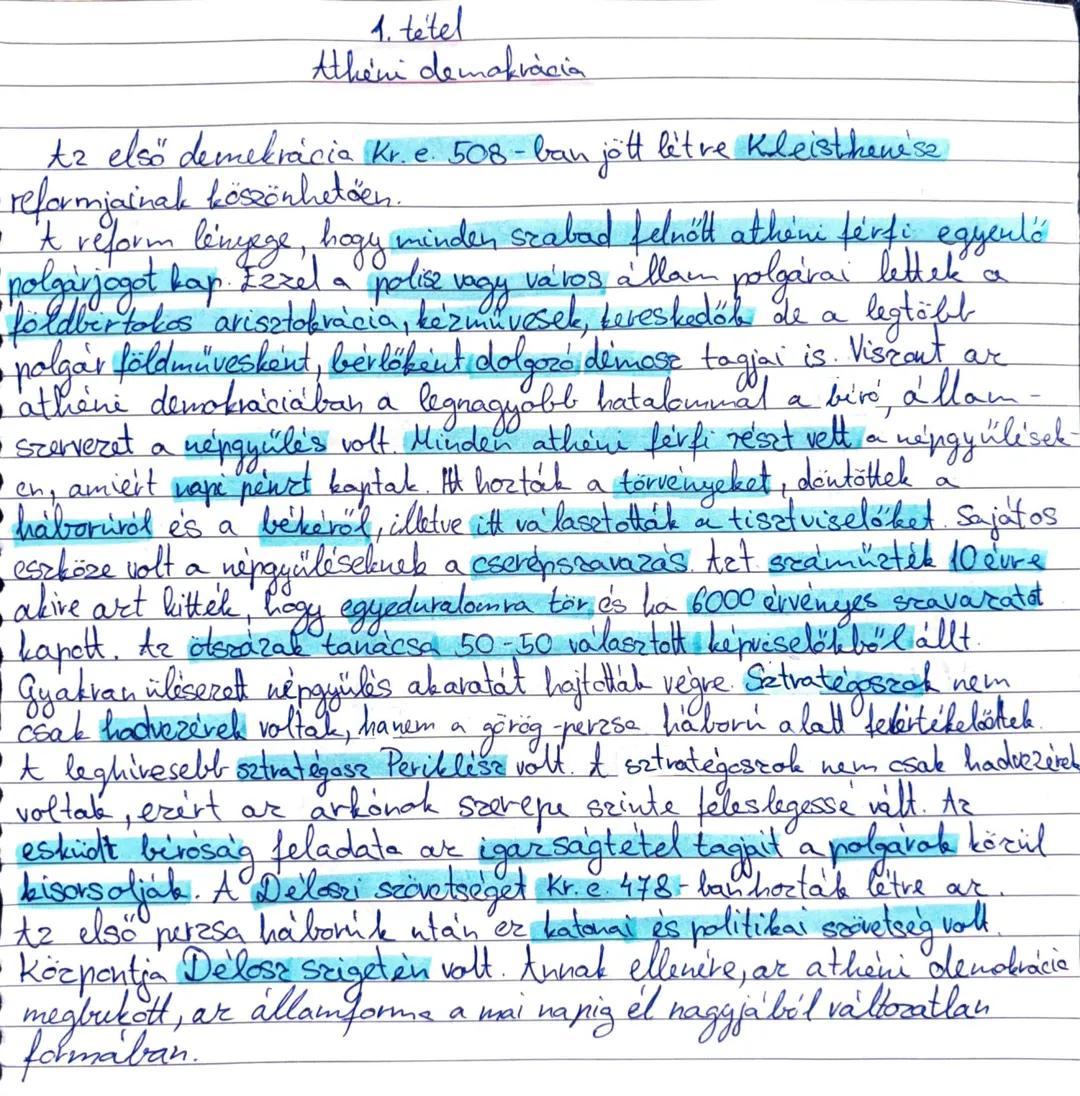 1. tétel
Athéni demokrácia
Az első demekrácia Kr. e. 508-ban jött létre Kleisthenész
reformjainak köszönhetően.
A reform lényege, hogy minden szabad felnőtt athéni férfi egyenlő
polgárjogot kap. Ezzel a polisz vagy város állam polgárai lettek a
földbirtokos arisztokrácia, kézművesek, kereskedők de a legtöbb
polgár földművesként, bérlőként dolgozó démosz tagjai is. Viszont az
athéni demokráciában a legnagyobb hatalommal a bíró, állam-
szervezet a népgyűlés volt. Minden athéni férfi részt vett a népgyűlések-
en, amiért napi pénzt kaptak. Itt hozták a törvényeket, döntöttek a
háborúról és a békéről, illetve itt választották a tisztviselőket. Sajátos
eszköze volt a népgyűléseknek a cserépszavazás. Azt száműzték 10 évre
akire azt hitték, hogy egyeduralomra tör és ha 6000 érvényes szavazatot
kapott. Az ötszázak tanácsa 50-50 választott képviselőkből állt.
Gyakran ülésezett népgyűlés akaratát hajtották végre. Sztratégoszok nem
csak hadvezérek voltak, hanem a görög-perzsa háború alatt felértékelődtek.
A leghíresebb sztratégosz Periklész volt. A sztratégoszok nem csak hadvezérek
voltak, ezért az arkónok szerepe szinte feleslegessé vált. Az
esküdt bíróság feladata az igazságtétel tagjait a polgárok közül
kisorsolják. A Déloszi szövetséget Kr. e. 478-ban hozták létre az.
Az első perzsa háborúk után ez katonai és politikai szövetség volt.
Központja Délosz szigetén volt. Annak ellenére, az athéni demokrácia
megbukott, az államforma a mai napig él nagyjából változatlan
formában.